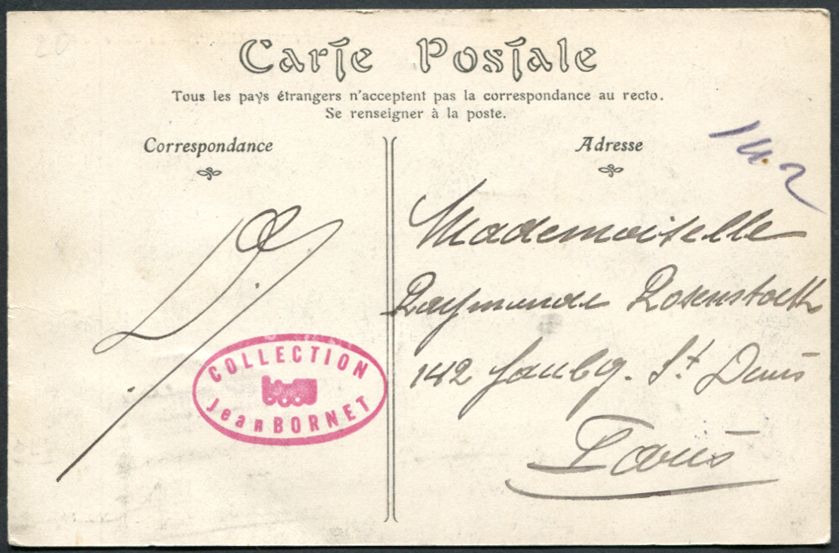 20
Carte Postale
Tous les pays étrangers n'acceptent pas la correspondance au recto.
Se renseigner à la poste.
Correspondance
Adresse
142
Mademoiselle
Raymonde Rosenstock
142 faubg. St Denis
Paris
COLLECTION
Jean BORNET